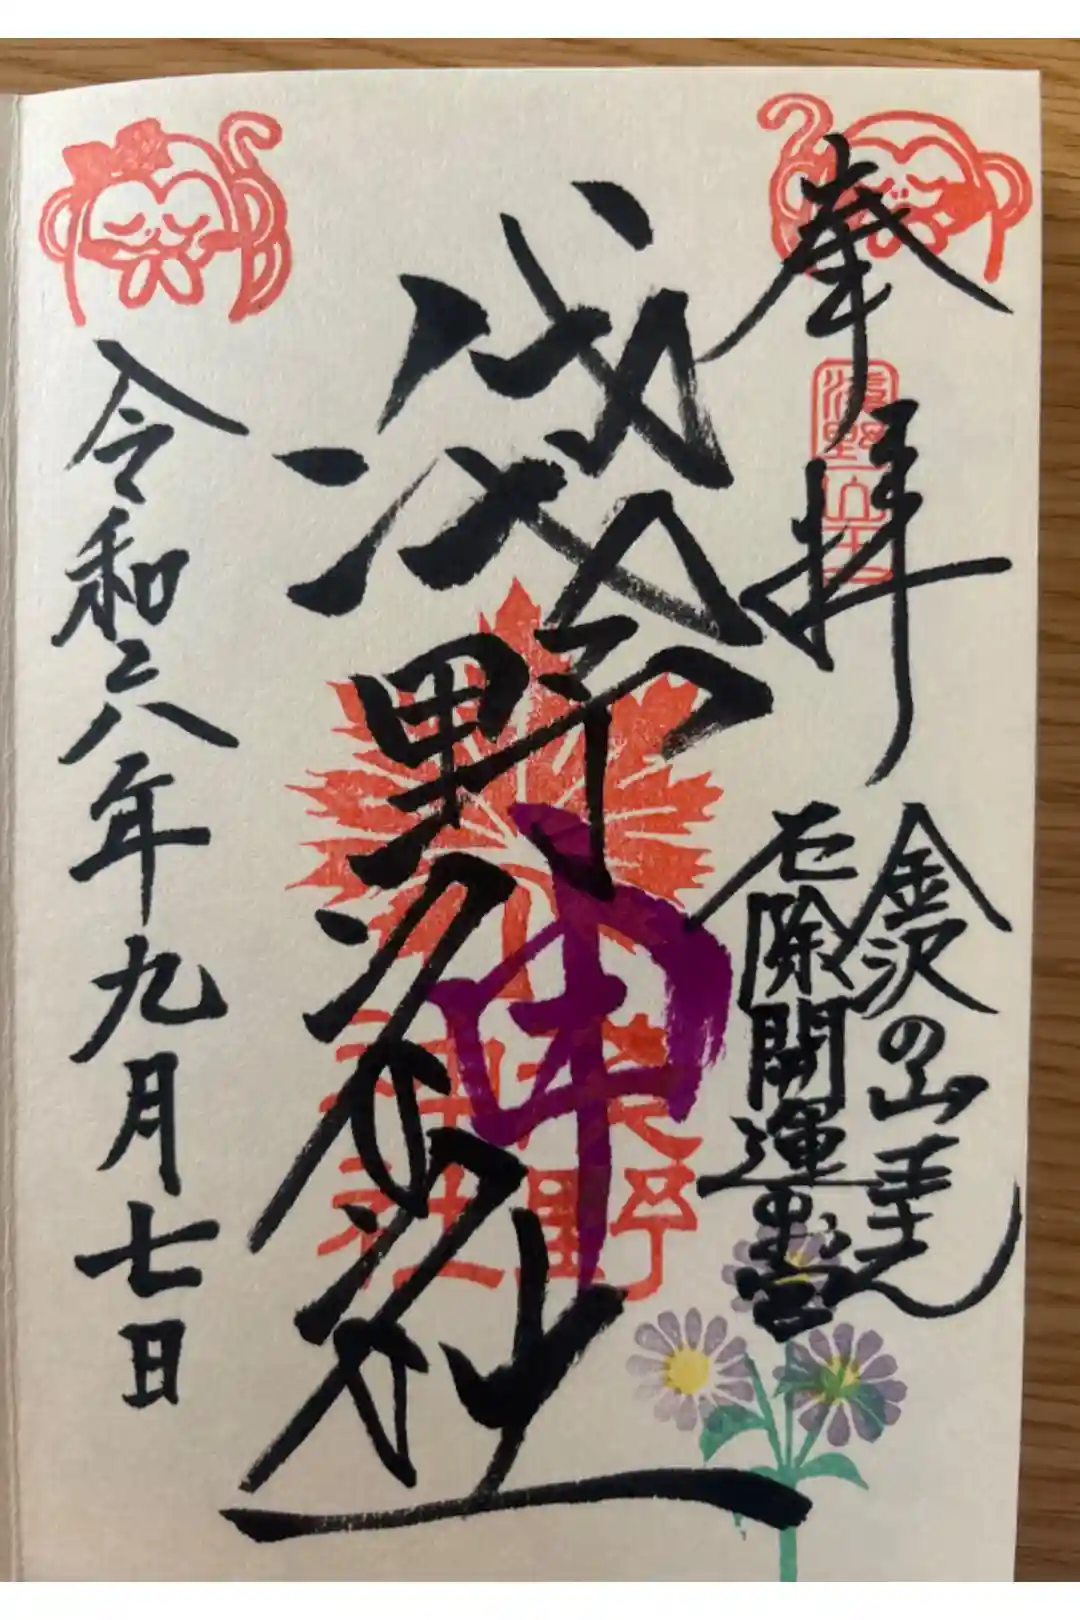 奉拝
金沢の山王さん
厄除開運のお宮
浅野神社
申
浅野
神社
令和六年九月七日